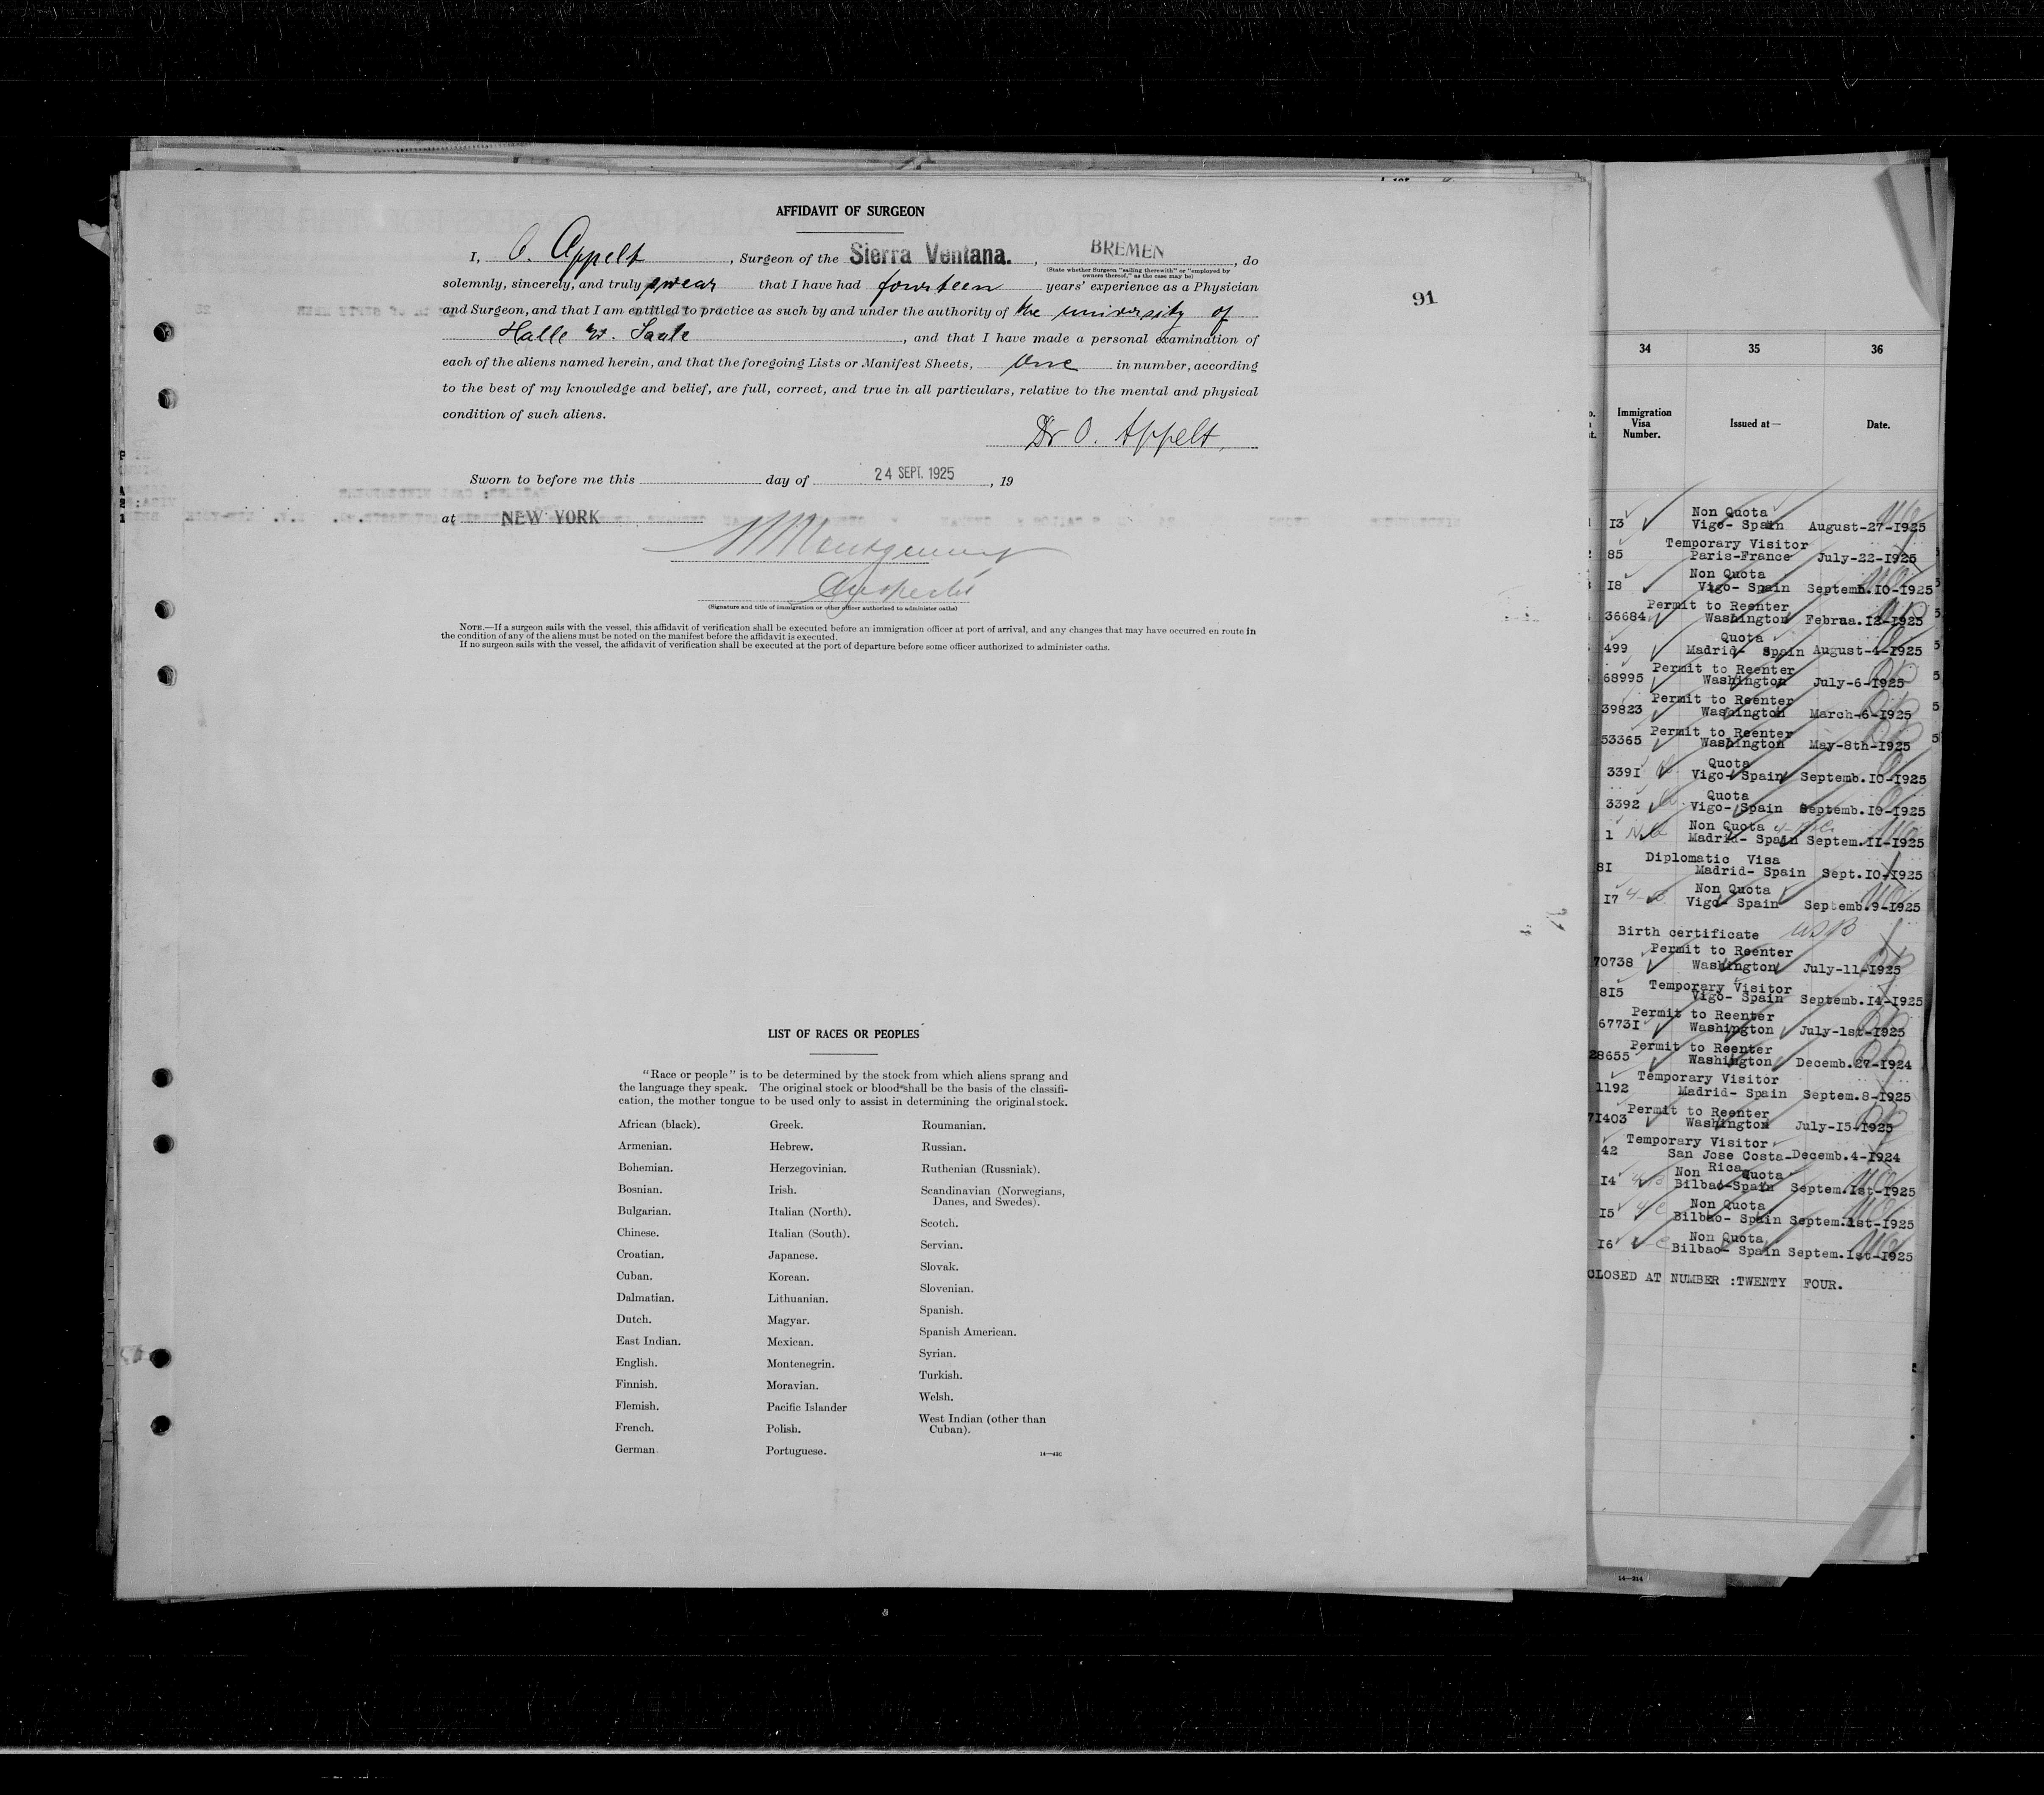 AFFIDAVIT OF SURGEON
I, O. Appelt , Surgeon of the Sierra Ventana. , BREMEN , do
(State whether Surgeon "sailing therewith" or "employed by
owners thereof," as the case may be)
solemnly, sincerely, and truly swear that I have had fourteen years' experience as a Physician
and Surgeon, and that I am entitled to practice as such by and under the authority of the university of
Halle , and that I have made a personal examination of
each of the aliens named herein, and that the foregoing Lists or Manifest Sheets, one in number, according
to the best of my knowledge and belief, are full, correct, and true in all particulars, relative to the mental and physical
condition of such aliens.
Dr O. Appelt
Sworn to before me this day of 24 SEPT. 1925 , 19
at NEW YORK
Montgomery
Inspector
(Signature and title of immigration or other officer authorized to administer oaths)
NOTE.—If a surgeon sails with the vessel, this affidavit of verification shall be executed before an immigration officer at port of arrival, and any changes that may have occurred en route in
the condition of any of the aliens must be noted on the manifest before the affidavit is executed.
If no surgeon sails with the vessel, the affidavit of verification shall be executed at the port of departure before some officer authorized to administer oaths.
91
LIST OF RACES OR PEOPLES
"Race or people" is to be determined by the stock from which aliens sprang and
the language they speak. The original stock or blood shall be the basis of the classifi-
cation, the mother tongue to be used only to assist in determining the original stock.
African (black).
Armenian.
Bohemian.
Bosnian.
Bulgarian.
Chinese.
Croatian.
Cuban.
Dalmatian.
Dutch.
East Indian.
English.
Finnish.
Flemish.
French.
German.
Greek.
Hebrew.
Herzegovinian.
Irish.
Italian (North).
Italian (South).
Japanese.
Korean.
Lithuanian.
Magyar.
Mexican.
Montenegrin.
Moravian.
Pacific Islander
Polish.
Portuguese.
Roumanian.
Russian.
Ruthenian (Russniak).
Scandinavian (Norwegians,
Danes, and Swedes).
Scotch.
Servian.
Slovak.
Slovenian.
Spanish.
Spanish American.
Syrian.
Turkish.
Welsh.
West Indian (other than
Cuban).
34 35 36
Immigration
Visa
Number.
Issued at—
Date.
Non Quota
13 Vigo- Spain August-27-1925
Temporary Visitor
85 Paris-France July-22-1925
Non Quota
18 Vigo- Spain Septemb.10-1925
Permit to Reenter
36684 Washington Februa.12-1925
Quota
499 Madrid- Spain August-4-1925
Permit to Reenter
68995 Washington July-6-1925
Permit to Reenter
39823 Washington March-6-1925
Permit to Reenter
53365 Washington May-8th-1925
Quota
3391 Vigo-Spain Septemb.10-1925
Quota
3392 Vigo-Spain Septemb.10-1925
Non Quota
1 Madrid- Spain Septem.11-1925
Diplomatic Visa
81 Madrid- Spain Sept.10-1925
Non Quota
17 Vigo- Spain Septemb.9-1925
Birth certificate USB
Permit to Reenter
70738 Washington July-11-1925
Temporary Visitor
815 Vigo- Spain Septemb.14-1925
Permit to Reenter
67731 Washington July-1st-1925
Permit to Reenter
28655 Washington Decemb.27-1924
Temporary Visitor
1192 Madrid- Spain Septem.8-1925
Permit to Reenter
71403 Washington July-15-1925
Temporary Visitor
42 San Jose Costa-Decemb.4-1924
Rica
Non Quota
14 Bilbao-Spain Septem.1st-1925
Non Quota
15 Bilbao- Spain Septem.1st-1925
Non Quota
16 Bilbao- Spain Septem.1st-1925
CLOSED AT NUMBER :TWENTY FOUR.
14—214